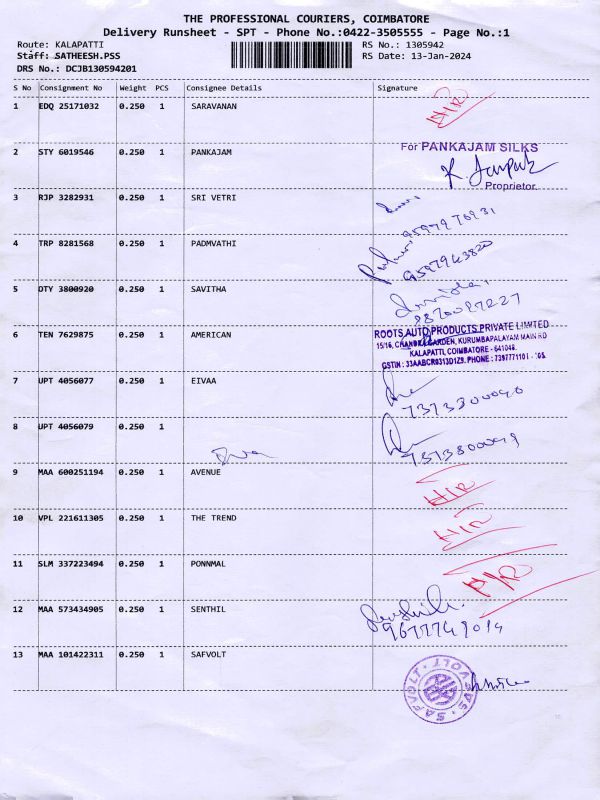 THE PROFESSIONAL COURIERS, COIMBATORE
Delivery Runsheet - SPT - Phone No.:0422-3505555 - Page No.:1
Route: KALAPATTI RS No.: 1305942
Staff: SATHEESH.PSS RS Date: 13-Jan-2024
DRS No.: DCJB130594201
S No Consignment No Weight PCS Consignee Details Signature
1 EDQ 25171032 0.250 1 SARAVANAN
2 STY 6019546 0.250 1 PANKAJAM
For PANKAJAM SILKS
Proprietor.
3 RJP 3282931 0.250 1 SRI VETRI
4 TRP 8281568 0.250 1 PADMVATHI
9597943820
5 DTY 3800920 0.250 1 SAVITHA
6 TEN 7629875 0.250 1 AMERICAN
ROOTS AUTO PRODUCTS PRIVATE LIMITED
15/16, CHANDRA GARDEN, KURUMBAPALAYAM MAIN RD
KALAPATTI, COIMBATORE - 641048.
GSTIN : 33AABCR0313D1Z9. PHONE : 7397771101 - 105
7 UPT 4056077 0.250 1 EIVAA
8 UPT 4056079 0.250 1
9 MAA 600251194 0.250 1 AVENUE
10 VPL 221611305 0.250 1 THE TREND
11 SLM 337223494 0.250 1 PONNMAL
12 MAA 573434905 0.250 1 SENTHIL
13 MAA 101422311 0.250 1 SAFVOLT
SAFVOLT SAFVOLT